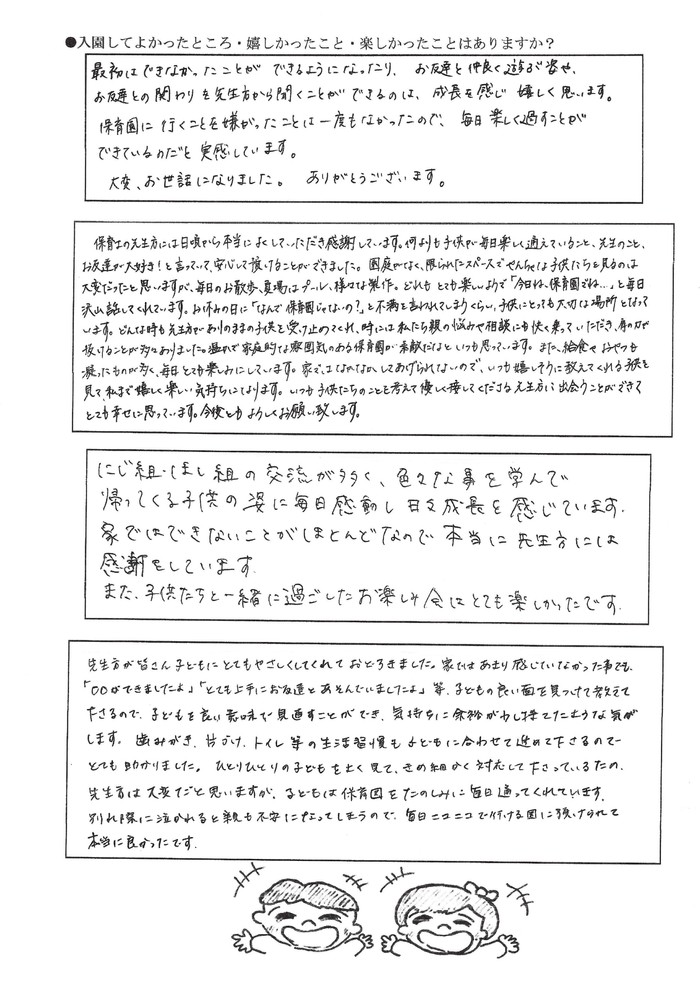 ●入園してよかったところ・嬉しかったこと・楽しかったことはありますか？
最初はできなかったことが できるようになったり、 お友達と仲良く遊ぶ姿や、
お友達との関わりを先生方から聞くことができるのは、成長を感じ 嬉しく思います。
保育園に行くことを嫌がったことは一度もなかったので、毎日楽しく過すことが
できているのだと実感しています。
大変、お世話になりました。 ありがとうございます。
保育士の先生方には日頃から本当によくしていただき感謝しています。何よりも子供が毎日楽しく通えていること、先生のこと、
お友達が大好き！と言っていて、安心して預けることができました。園庭がなく、限られたスペースでやんちゃな子供たちを見るのは
大変だったと思いますが、毎日のお散歩、真夏はプール、様々な製作。どれもとても楽しいようで「今日ね、保育園でね…」と毎日
沢山話してくれています。お休みの日に「なんで保育園じゃないの？」と不満を言われてしまうくらい、子供にとっても大切な場所となって
います。どんな時も先生方がありのままの子供を受け止めてくれ、時には私たち親の悩みや相談にも快く乗っていただき、肩の力が
抜けることが多々ありました。温かで家庭的な雰囲気のある保育園が素敵だなといつも思っています。また、給食やおやつも
凝ったものが多く、毎日とても楽しみにしています。家ではなかなかしてあげられないので、いつも嬉しそうに教えてくれる子供を
見て私まで嬉しく楽しい気持ちになります。いつも子供たちのことを考えて優しく接してくださる先生方に出会うことができて
とても幸せに思っています。今後ともよろしくお願い致します。
にじ組・ほし組の交流が多く、色々な事を学んで
帰ってくる子供の姿に毎日感動し日々成長を感じています。
家ではできないことがほとんどなので本当に先生方には
感謝をしています。
また、子供たちと一緒に過ごしたお楽しみ会はとても楽しかったです。
先生方が皆さん子どもにとてもやさしくしてくれておどろきました。家ではあまり感じていなかった事でも、
「○○ができましたよ」「とても上手にお友達とあそんでいましたよ」等、子どもの良い面を見つけて教えて
下さるので、子どもを良い意味で見直すことができ、気持ちに余裕が少し持てたような気が
します。歯みがき、片づけ、トイレ等の生活習慣も子どもに合わせて進めて下さるので
とても助かりました。ひとりひとりの子どもをよく見て、きめ細かく対応して下さっているため、
先生方は大変だと思いますが、子どもは保育園をたのしみに毎日通ってくれています。
別れ際に泣かれると親も不安になってしまうので、毎日ニコニコで行ける園に預けられて
本当に良かったです。